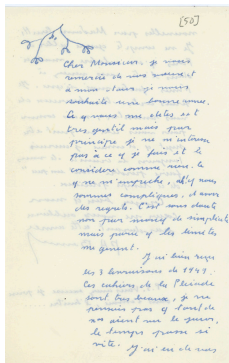 [50]
Cher Monsieur, je vous
remercie de vos voeux et
à mon tour je vous
souhaite une bonne année.
Ce que vous me dites est
très gentil mais par
principe je ne m'intéresse
pas à ce que je fais et le
considère comme non
que ne m'empêche, ah! que nous
sommes compliqués, d'avoir
des regrets. C'est sans doute
non par manque de simplicité
mais parce que les limites
me gênent.
J'ai bien reçu
les 3 livraisons de 1949.
Les cahiers de la Pléiade
sont très beaux, je ne
pensais pas que tant de
aient vu le jour,
le temps passe si
vite. J'ai eu de vos